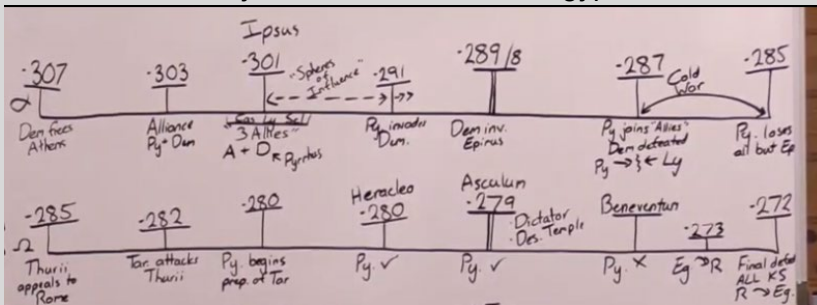 Ipsus
-307
-303
-301
"Spheres
of
Influence"
-291
-289/8
-287
Cold
War
-285
α
Dem frees
Athens
Alliance
Py + Dem
Cas Ly Sel
"3 Allies"
A + D
Pyrrhos
Py invades
Dem.
Dem inv.
Epirus
Py joins "Allies"
Dem defeated
Py → ← Ly
Py. loses
all but Ep
-285
-282
-280
Heraclea
-280
Asculum
-279
· Dictator
· Des. Temple
Beneventum
-273
-272
Ω
Thurii
appeals to
Rome
Tar. attacks
Thurii
Py. begins
prep. at Tar
Py. ✓
Py. ✓
Py. ×
Eg → R
Final defeat
ALL KS
R → Eg.